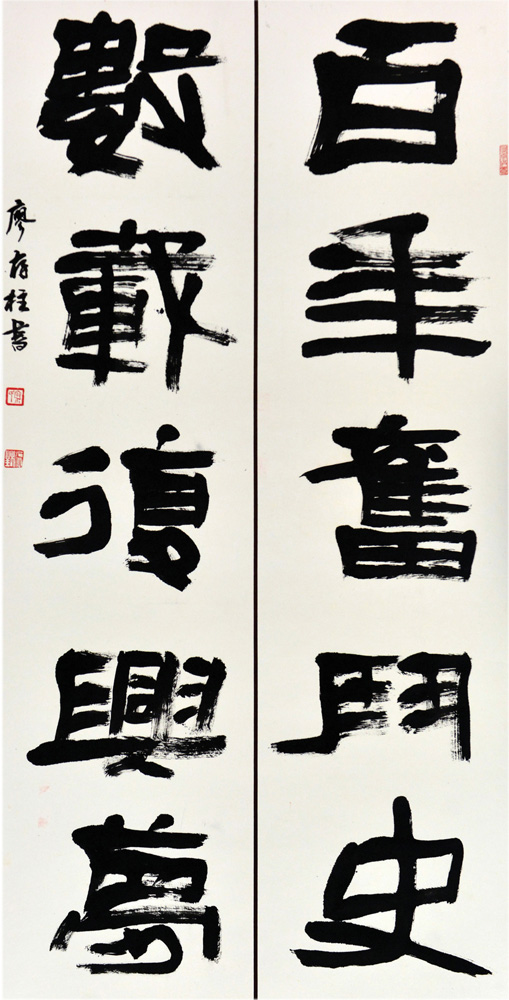 百年奮鬥史
數載復興夢
廖存柱書